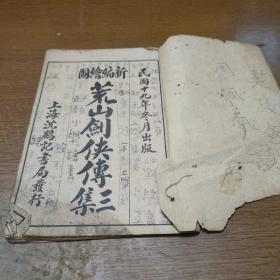 民國十九年冬月出版
新編繪圖
荒山劍俠傳三集
上海沈鶴記書局發行